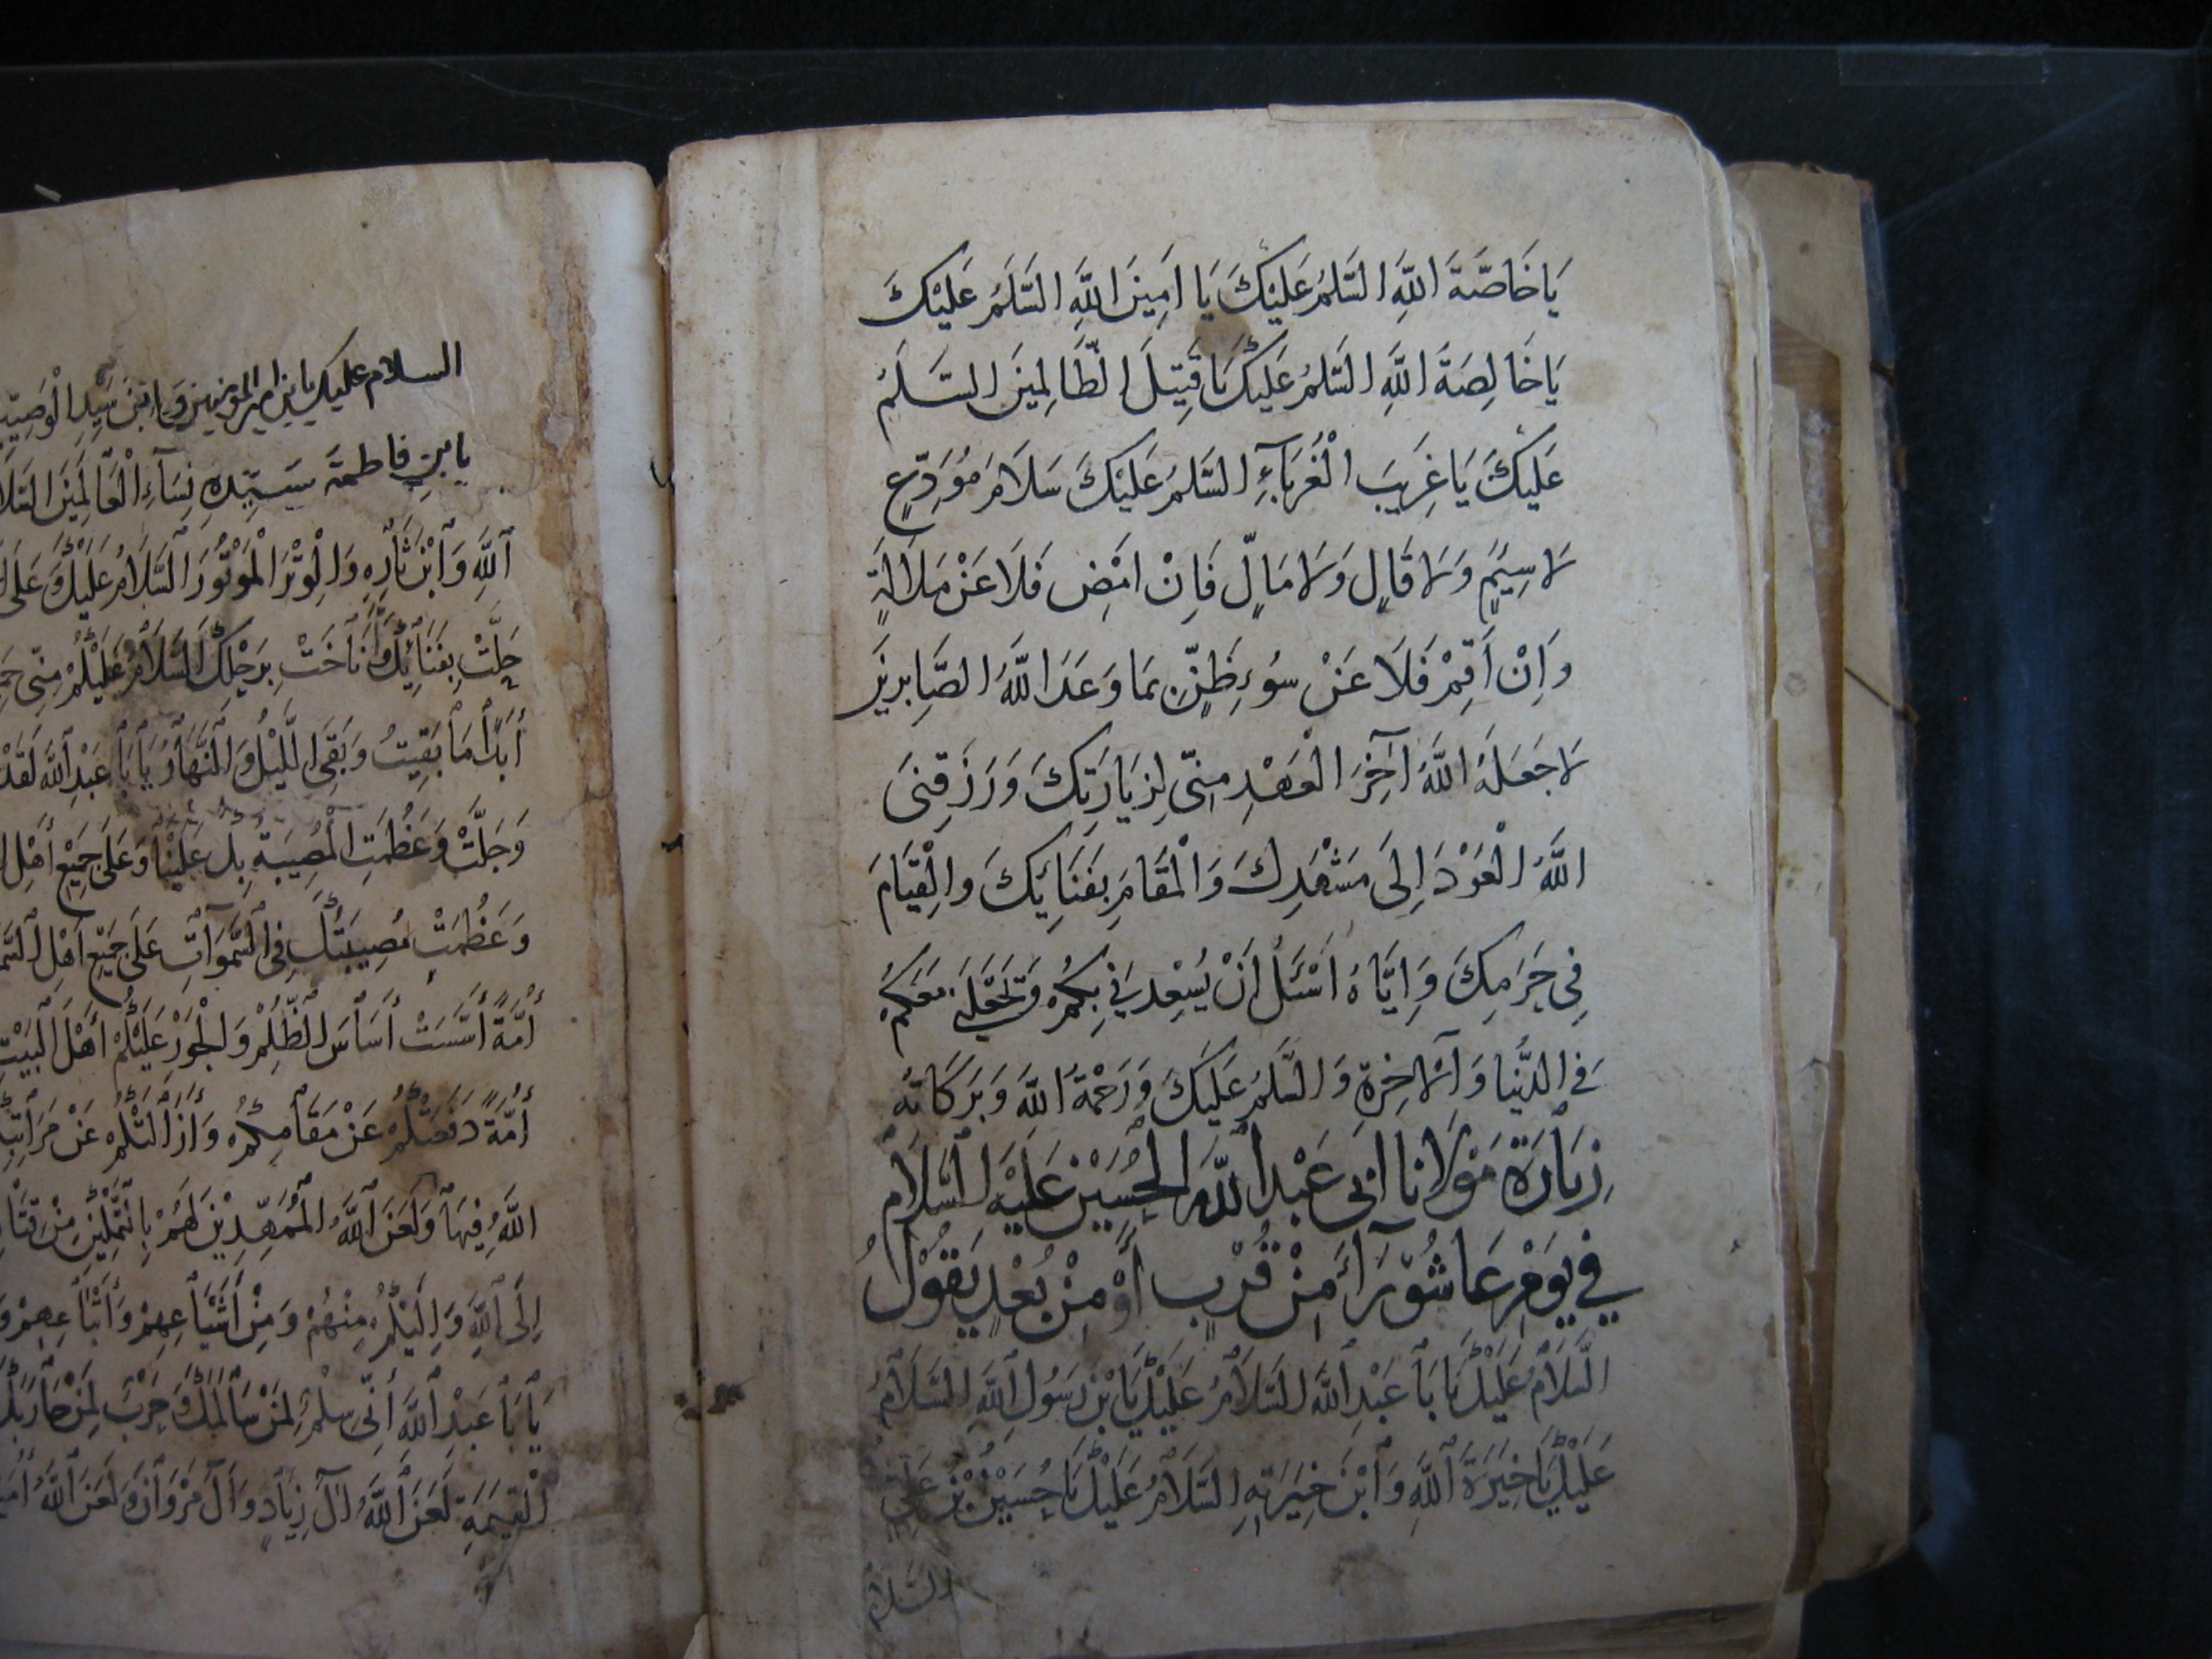 يَا خَاصَّةَ اللَّهِ السَّلَمُ عَلَيْكَ يَا اَمِينَ اللَّهِ السَّلَمُ عَلَيْكَ
يَا خَالِصَةَ اللَّهِ السَّلَمُ عَلَيْكَ يَا قَتِيلَ الظَّالِمِينَ السَّلَمُ
عَلَيْكَ يَا غَرِيبَ الْغُرَبَآءِ السَّلَمُ عَلَيْكَ سَلَامَ مُوَدِّعٍ
لَا سَئِمٍ وَلَا قَالٍ وَلَا مَالٍّ فَاِنْ اَمْضِ فَلَا عَنْ مَلَالَةٍ
وَاِنْ أَقِمْ فَلَا عَنْ سُوءِ ظَنٍّ بِمَا وَعَدَ اللَّهُ الصَّابِرِينَ
لَا جَعَلَهُ اللَّهُ آخِرَ الْعَهْدِ مِنِّي لِزِيَارَتِكَ وَرَزَقَنِي
اللَّهُ الْعَوْدَ اِلَى مَشْهَدِكَ وَالْمَقَامَ بِفَنَائِكَ وَالْقِيَامَ
فِي حَرَمِكَ وَاِيَّاهُ اَسْئَلُ اَنْ يُسْعِدَنِي بِكُمْ وَيَجْعَلَنِي مَعَكُمْ
فِي الدُّنْيَا وَالْآخِرَةِ وَالسَّلَمُ عَلَيْكَ وَرَحْمَةُ اللَّهِ وَبَرَكَاتُهُ
زِيَارَةُ مَوْلَانَا اَبِي عَبْدِ اللَّهِ الْحُسَيْنِ عَلَيْهِ السَّلَامُ
فِي يَوْمِ عَاشُورَآءَ مِنْ قُرْبٍ أَوْ مِنْ بُعْدٍ يَقُوْلُ
السَّلَامُ عَلَيْكَ يَا بَا عَبْدِ اللَّهِ السَّلَامُ عَلَيْكَ يَا بْنَ رَسُولِ اللَّهِ السَّلَامُ
عَلَيْكَ يَا خِيَرَةَ اللَّهِ وَابْنَ خِيَرَتِهِ السَّلَامُ عَلَيْكَ يَا حُسَيْنَ بْنَ عَلِيٍّ
السَّلَامُ
السلام عليك يا بن امير المؤمنين وَابْنَ سَيِّدِ الْوَصِيِّينَ
يا بن فاطمة سَيِّدَةِ نِسَآءِ الْعَالَمِينَ
اللَّهِ وَابْنَ ثَارِهِ وَالْوِتْرَ الْمَوْتُورَ السَّلَامُ عَلَيْكَ وَعَلَى
حَلَّتْ بِفَنَائِكَ وَأَنَاخَتْ بِرَحْلِكَ السَّلَامُ عَلَيْكُمْ مِنِّي
أَبَدًا مَا بَقِيتُ وَبَقِيَ اللَّيْلُ وَالنَّهَارُ يَا بَا عَبْدِ اللَّهِ لَقَدْ
وَجَلَّتْ وَعَظُمَتِ الْمُصِيبَةُ بِكَ عَلَيْنَا وَعَلَى جَمِيعِ أَهْلِ
وَعَظُمَتْ مُصِيبَتُكَ فِي السَّمَوَاتِ عَلَى جَمِيعِ أَهْلِ
أُمَّةً أَسَّسَتْ أَسَاسَ الظُّلْمِ وَالْجَوْرِ عَلَيْكُمْ أَهْلَ الْبَيْتِ
أُمَّةً دَفَعَتْكُمْ عَنْ مَقَامِكُمْ وَأَزَالَتْكُمْ عَنْ مَرَاتِبِكُمْ
اللَّهُ فِيهَا وَلَعَنَ اللَّهُ الْمُمَهِّدِينَ لَهُمْ بِالتَّمْكِينِ مِنْ
اِلَى اللَّهِ وَاِلَيْكُمْ مِنْهُمْ وَمِنْ أَشْيَاعِهِمْ وَأَتْبَاعِهِمْ
يَا بَا عَبْدِ اللَّهِ اِنِّي سِلْمٌ لِمَنْ سَالَمَكَ وَحَرْبٌ لِمَنْ حَارَبَكَ
الْقِيَمَةِ لَعَنَ اللَّهُ آلَ زِيَادٍ وَآلَ مَرْوَانَ وَلَعَنَ اللَّهُ